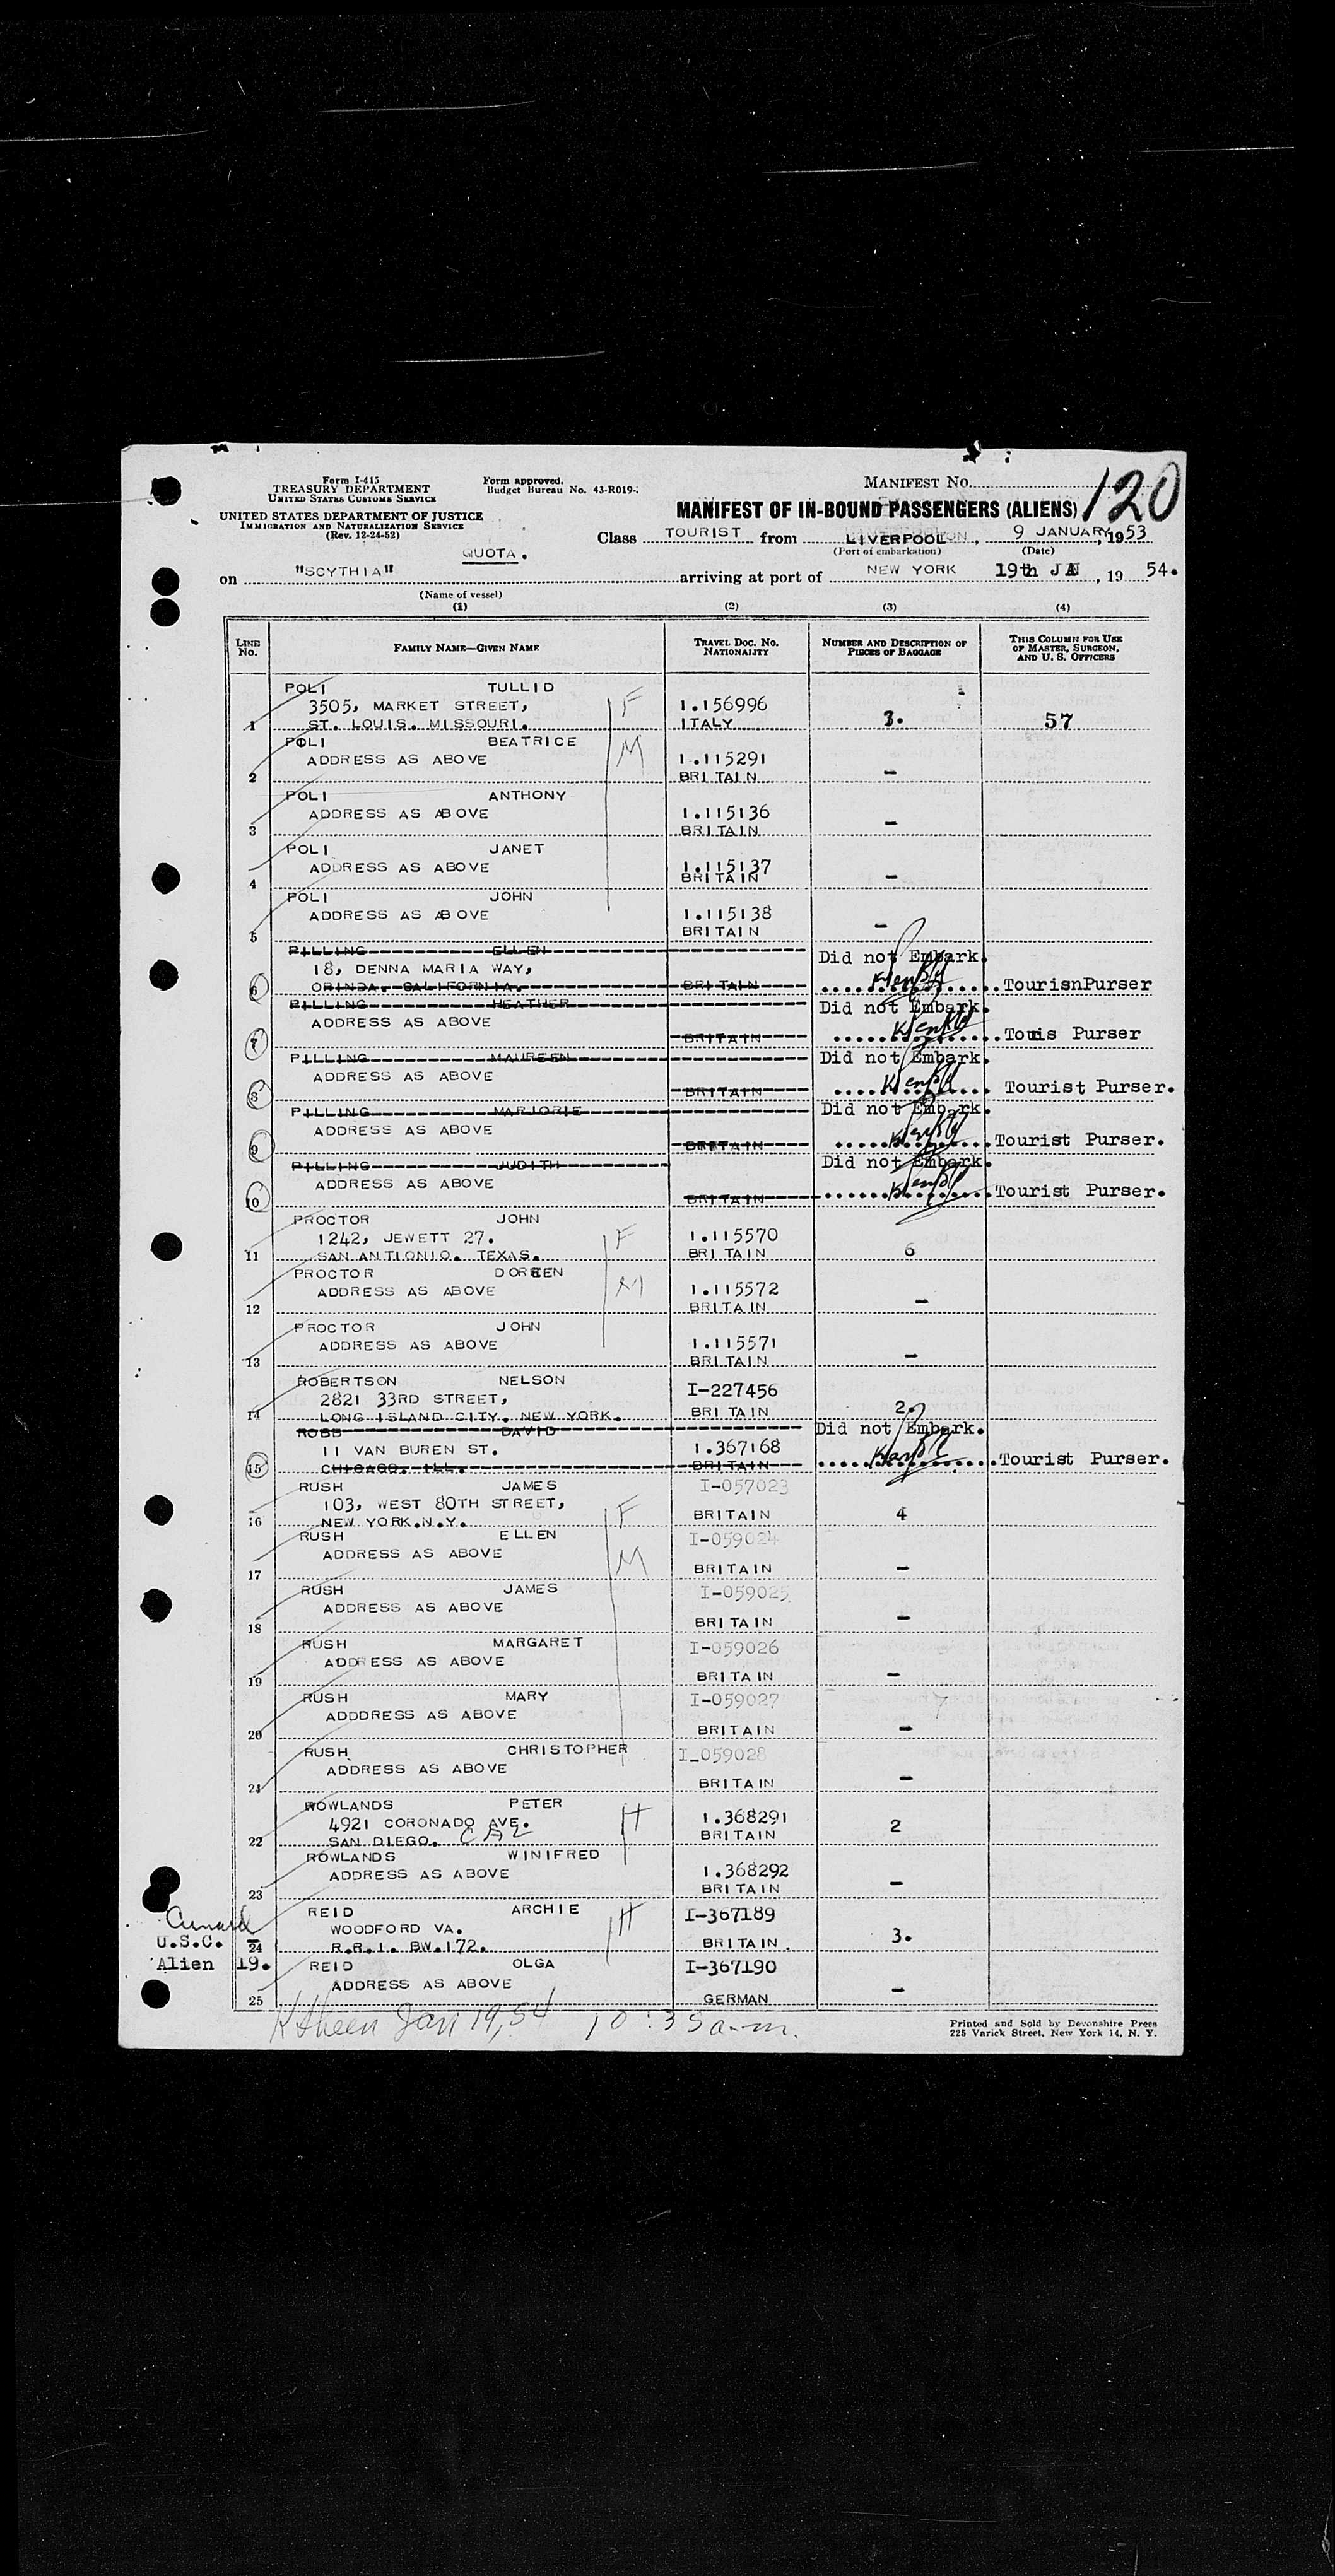 Form I-415
TREASURY DEPARTMENT
UNITED STATES CUSTOMS SERVICE
UNITED STATES DEPARTMENT OF JUSTICE
IMMIGRATION AND NATURALIZATION SERVICE
(Rev. 12-24-52)
Form approved.
Budget Bureau No. 43-R019-
MANIFEST No. 120
MANIFEST OF IN-BOUND PASSENGERS (ALIENS)
Class TOURIST from LIVERPOOL, 9 JANUARY, 1953
(Port of embarkation) (Date)
QUOTA.
on "SCYTHIA" arriving at port of NEW YORK 19th JAN, 19 54.
(Name of vessel)
(1) (2) (3) (4)
LINE No. FAMILY NAME—GIVEN NAME TRAVEL DOC. No. NATIONALITY NUMBER AND DESCRIPTION OF PIECES OF BAGGAGE THIS COLUMN FOR USE OF MASTER, SURGEON, AND U. S. OFFICERS
POLI TULLID
3505, MARKET STREET, F 1.156996
1 ST. LOUIS. MISSOURI. ITALY 3. 57
POLI BEATRICE
ADDRESS AS ABOVE M 1.115291
2 BRITAIN -
POLI ANTHONY
ADDRESS AS ABOVE 1.115136
3 BRITAIN -
POLI JANET
ADDRESS AS ABOVE 1.115137
4 BRITAIN -
POLI JOHN
ADDRESS AS ABOVE 1.115138
5 BRITAIN -
PILLING ELLEN Did not Embark.
18, DENNA MARIA WAY,
6 ORINDA. CALIFORNIA. BRITAIN TourisnPurser
PILLING HEATHER Did not Embark.
ADDRESS AS ABOVE
7 BRITAIN Touris Purser
PILLING MAUREEN Did not Embark.
ADDRESS AS ABOVE
8 BRITAIN Tourist Purser.
PILLING MARJORIE Did not Embark.
ADDRESS AS ABOVE
9 BRITAIN Tourist Purser.
PILLING JUDITH Did not Embark.
ADDRESS AS ABOVE
10 BRITAIN Tourist Purser.
PROCTOR JOHN
1242, JEWETT 27. F 1.115570
11 SAN ANTIONIO. TEXAS. BRITAIN 6
PROCTOR DOREEN
ADDRESS AS ABOVE M 1.115572
12 BRITAIN -
PROCTOR JOHN
ADDRESS AS ABOVE 1.115571
13 BRITAIN -
ROBERTSON NELSON
2821 33RD STREET, I-227456
14 LONG ISLAND CITY. NEW YORK. BRITAIN 2.
ROBB DAVID Did not Embark.
11 VAN BUREN ST. 1.367168
15 CHICAGO. ILL. BRITAIN Tourist Purser.
RUSH JAMES I-057023
103, WEST 80TH STREET, F
16 NEW YORK.N.Y. BRITAIN 4
RUSH ELLEN I-059024
ADDRESS AS ABOVE M
17 BRITAIN -
RUSH JAMES I-059025
ADDRESS AS ABOVE
18 BRITAIN -
RUSH MARGARET I-059026
ADDRESS AS ABOVE
19 BRITAIN -
RUSH MARY I-059027
ADDDRESS AS ABOVE
20 BRITAIN -
RUSH CHRISTOPHER I_059028
ADDRESS AS ABOVE
21 BRITAIN -
ROWLANDS PETER
4921 CORONADO AVE. H 1.368291
22 SAN DIEGO. CAL BRITAIN 2
ROWLANDS WINIFRED
ADDRESS AS ABOVE 1.368292
23 BRITAIN -
REID ARCHIE H I-367189
Cunard WOODFORD VA.
U.S.C. - 24 R.R.1. BW.172. BRITAIN. 3.
Alien 19. REID OLGA I-367190
ADDRESS AS ABOVE
25 GERMAN -
Jan 19, 54 10:35 a.m.
Printed and Sold by Devonshire Press
225 Varick Street, New York 14, N. Y.